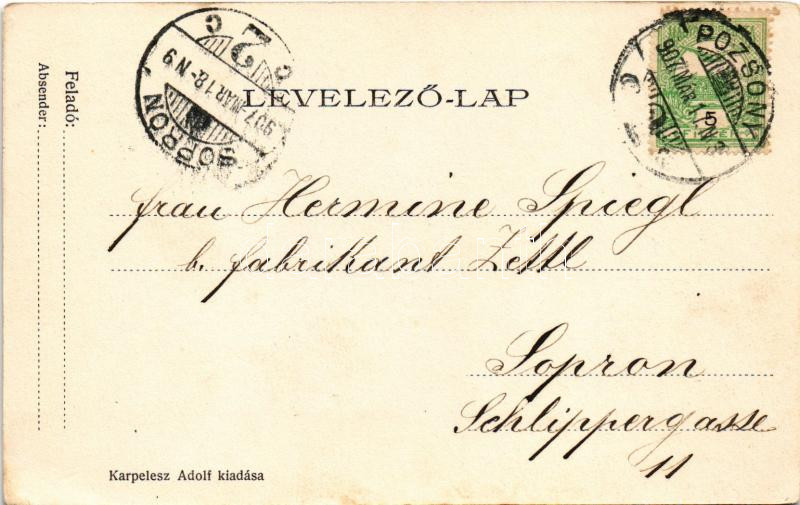 Feladó:
Absender:
LEVELEZŐ-LAP
SOPRON
907 MÁR 18 - N 9
C 2 C
POZSONY
907 MÁR
5
frau Hermine Spiegl
b. fabrikant Zettl
Sopron
Schlippergasse
11
Karpelesz Adolf kiadása